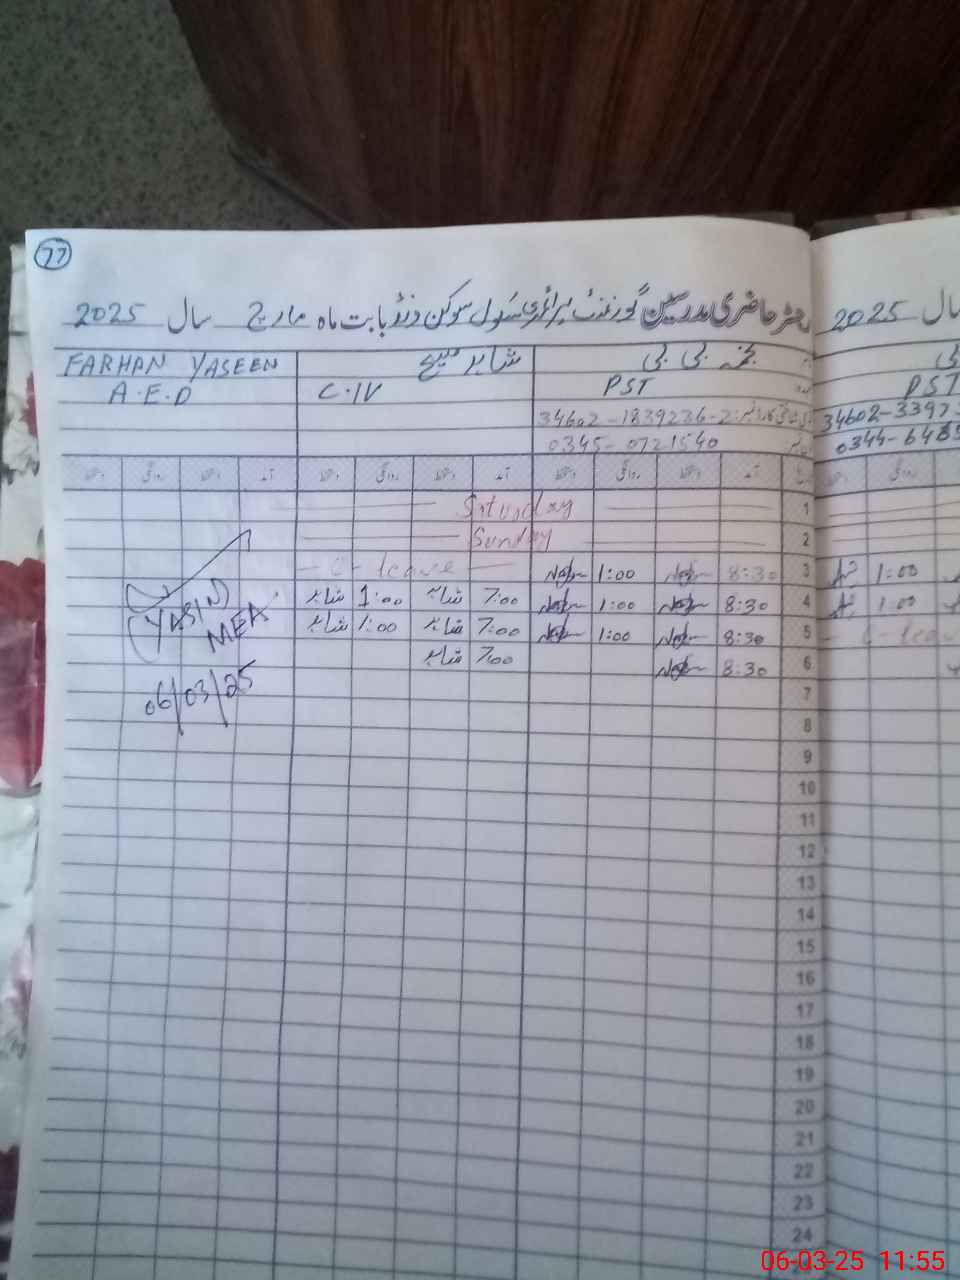 77
رجسٹر حاضری مدرسین گورنمنٹ پرائمری سکول سوکن ونڈ بابت ماہ مارچ سال 2025
نجمہ بی بی شاہد مسیح FARHAN YASEEN
PST C.IV A.E.D
34602-1839236-2
0345-0721540
آمد دستخط روانگی دستخط آمد دستخط روانگی دستخط آمد دستخط روانگی دستخط
1 Saturday
2 Sunday
3 8:30 1:00 C-leave
4 8:30 1:00 7:00 شاہد 1:00 شاہد
5 8:30 1:00 7:00 شاہد 1:00 شاہد
6 8:30 7:00 شاہد
7
8
9
10
11
12
13
14
15
16
17
18
19
20
21
22
23
24
(YASIN)
MEA
06/03/25
سال 2025
PST
34602-3397
0344-6485
1:00
1:00
C-leav
06-03-25 11:55